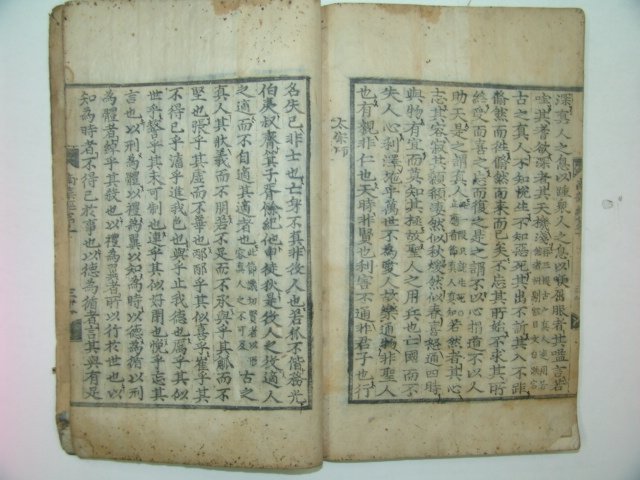 深眞人之息以踵衆人之息以喉屈服者其嗌言若
哇其耆欲深者其天機淺
古之眞人不知悅生不知惡死其出不訢其入不距
翛然而往翛然而來而已矣不忘其所始不求其所
終受而喜之忘而復之是之謂不以心捐道不以人
助天是之謂眞人若然者其心
志其容寂其顙頯凄然似秋煖然似春喜怒通四時
與物有宜而莫知其極故聖人之用兵也亡國而不
失人心利澤施乎萬世不爲愛人故樂通物非聖人
也有親非仁也天時非賢也利害不通非君子也行
大宗師
名失己非士也亡身不眞非役人也若狐不偕務光
伯夷叔齊箕子胥餘紀他申徒狄是役人之役適人
之適而不自適其適者也古之
眞人其狀義而不朋若不足而不承與乎其觚而不
堅也張乎其虛而不華也邴邴乎其似喜乎崔乎其
不得已乎滀乎進我色也與乎止我德也厲乎其似
世乎謷乎其未可制也連乎其似好閉也悗乎忘其
言也以刑爲體以禮爲翼以知爲時以德爲循以刑
爲體者綽乎其殺也以禮爲翼者所以行於世也以
知爲時者不得已於事也以德爲循者言其與有足